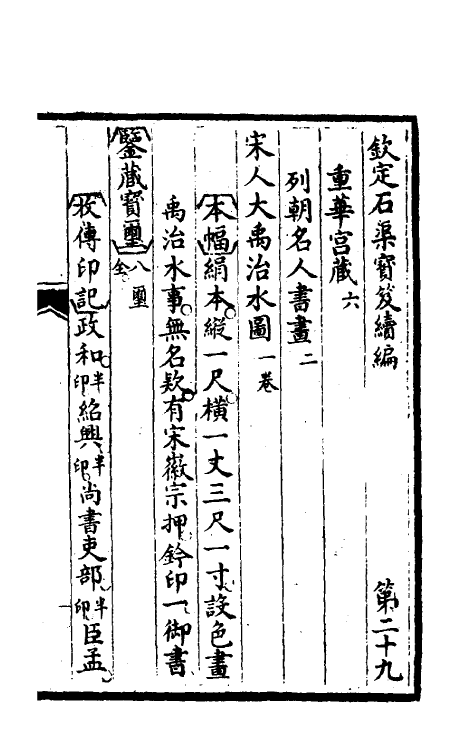 欽定石渠寶笈續編 第二十九
重華宮藏 六
列朝名人書畫 二
宋人大禹治水圖 一卷
本幅絹本縱一尺橫一丈三尺一寸設色畫
禹治水事無名欵有宋徽宗押鈐印一御書
鑒藏寶璽 八璽全
收傳印記政和半印紹興半印尚書吏部半印臣孟